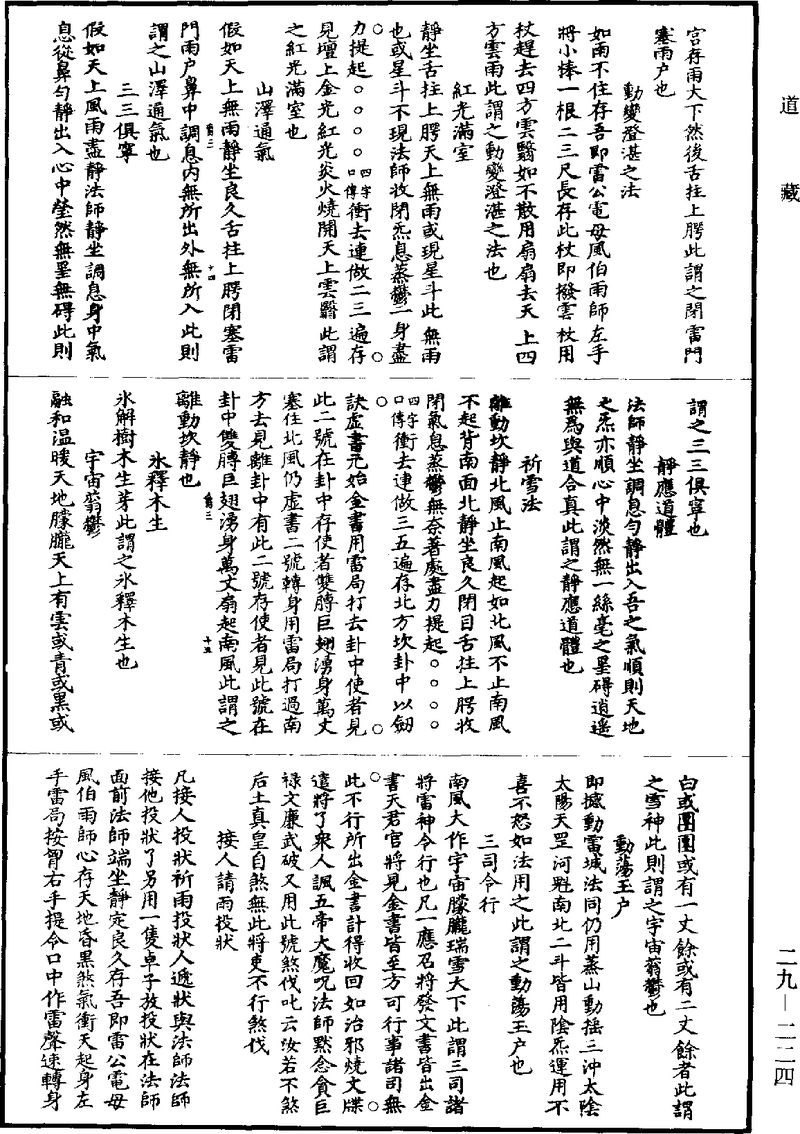 道藏
宮存雨大下然後舌拄上腭此謂之閉雷門
塞雨户也
動變澄湛之法
如雨不住存吾即雷公電母風伯雨師左手
將小棒一根二三尺長存此杖即撥雲杖用
杖趕去四方雲翳如不散用扇扇去天上四
方雲雨此謂之動變澄湛之法也
紅光滿室
靜坐舌拄上腭天上無雨或現星斗此無雨
也或星斗不現法師收閉炁息蒸鬱一身盡
力提起○○○○四字口傳衝去連做二三遍存
見壇上金光紅光炎火燒開天上雲翳此謂
之紅光滿室也
山澤通氣
假如天上無雨靜坐良久舌拄上腭閉塞雷
門雨户鼻中調息内無所出外無所入此則
謂之山澤通氣也
三三俱寧
假如天上風雨盡靜法師靜坐調息身中氣
息從鼻勻靜出入心中瑩然無罣無碍此則
謂之三三俱寧也
靜應道體
法師靜坐調息勻靜出入吾之氣順則天地
之炁亦順心中淡然無一絲毫之罣碍逍遥
無爲與道合真此謂之靜應道體也
祈雪法
離動坎靜北風止南風起如北風不止南風
不起背南面北靜坐良久閉目舌拄上腭收
閉氣息蒸鬱無奈著處盡力提起○○○○
四字口傳衝去連做三五遍存北方坎卦中以劒
訣虚書元始金書用雷局打去卦中使者見
此二號在卦中存使者雙膊巨翅湧身萬丈
塞住北風仍虚書二號轉身用雷局打過南
方去見離卦中有此二號存使者見此號在
卦中雙膊巨翅湧身萬丈扇起南風此謂之
離動坎靜也
氷釋木生
氷解樹木生芽此謂之氷釋木生也
宇宙蓊鬱
融和温暖天地朦朧天上有雲或青或黑或
白或團團或有一丈餘或有二丈餘者此謂
之雪神此則謂之宇宙蓊鬱也
動蕩玉户
即撼動雷城法同仍用蒸山動摇三沖太陰
太陽天罡河魁南北二斗皆用陰炁運用不
喜不怒如法用之此謂之動蕩玉户也
三司令行
南風大作宇宙朦朧瑞雪大下此謂三司諸
將雷神令行也凡一應召將發文書皆出金
書天君官將見金書皆至方可行事諸司無
此不行所出金書計得收回如治邪燒文牒
遣將了衆人諷五帝大魔呪法師默念貪巨
禄文廉武破又用此號煞伐叱云汝若不煞
后土真皇自煞無此將吏不行煞伐
接人請雨投狀
凡接人投狀祈雨投狀人遞狀與法師法師
接他投狀了另用一隻卓子放投狀在法師
面前法師端坐靜定良久存吾即雷公電母
風伯雨師心存天地昏黑煞氣衝天起身左
手雷局按胷右手提令口中作雷聲速轉身
二九—二二四